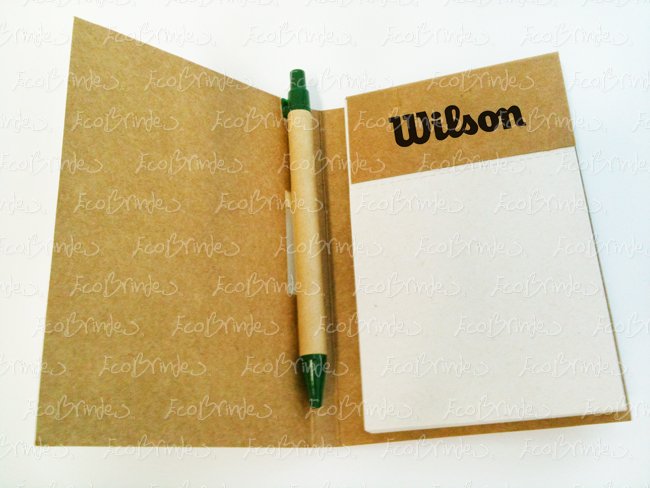 Wilson
EcoBrindes